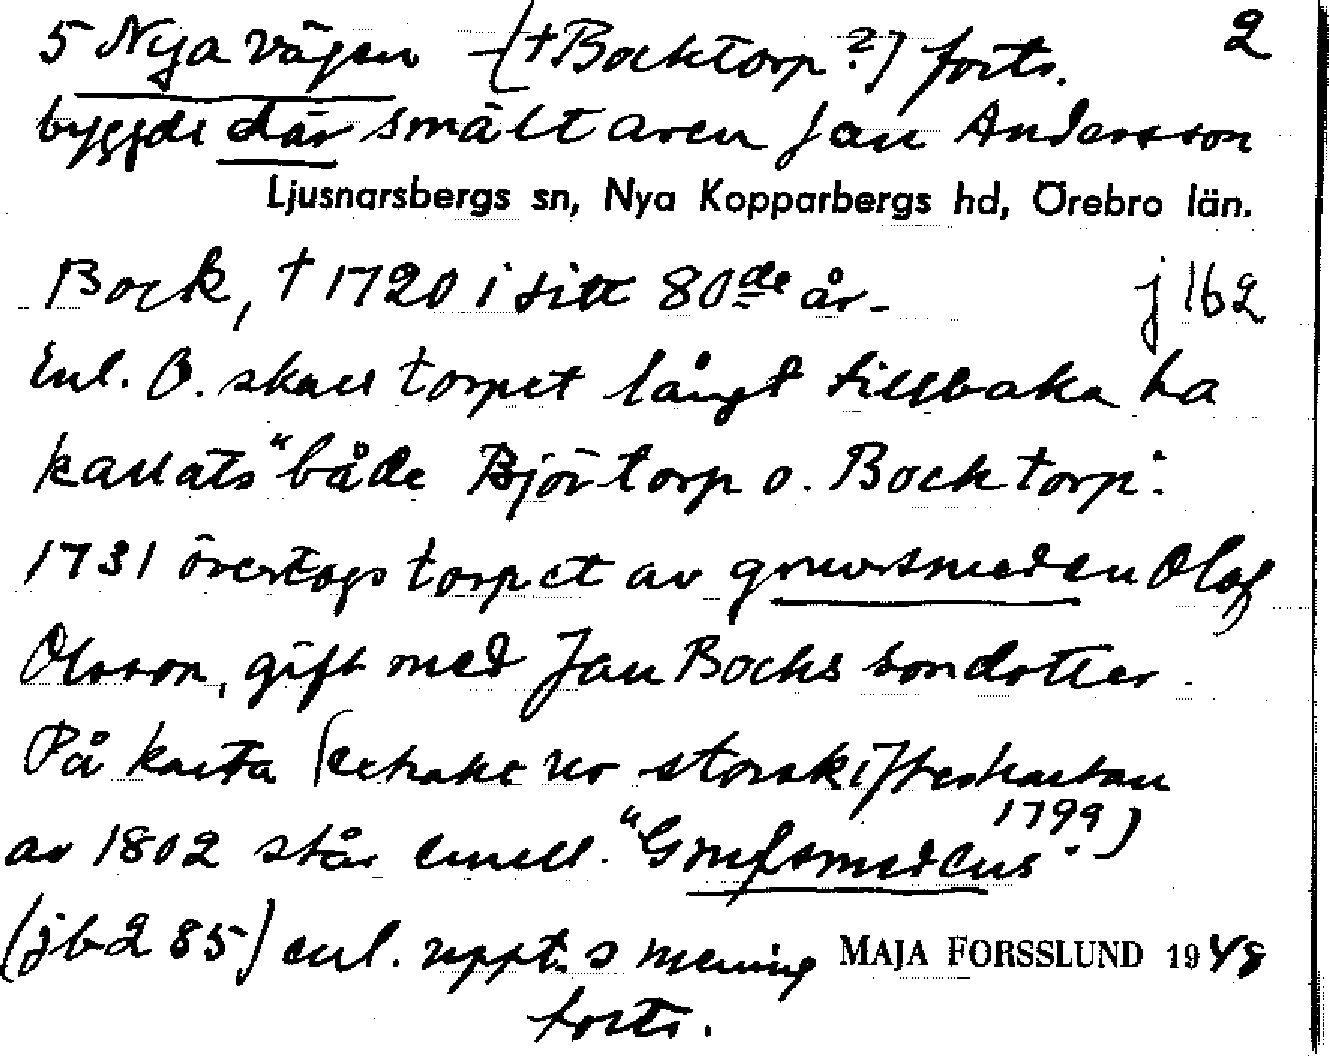 5 Nya vägen (+Bocktorp?) forts. 2
byggde där smältaren Jan Andersson
Ljusnarsbergs sn, Nya Kopparbergs hd, Örebro län.
Bock, † 1720 i sitt 80de år. j 162
Enl. O. skall torpet långt tillbaka ha
kallats "både Björtorp o. Bocktorp".
1731 övertogs torpet av gruvsmeden Olof
Olsson, gift med Jan Bocks sondotter.
På karta storskifteskartan
1799)
av 1802 står emell. "Grufsmedens"
(jb 285) enl. uppt.s mening MAJA FORSSLUND 1948
forts.